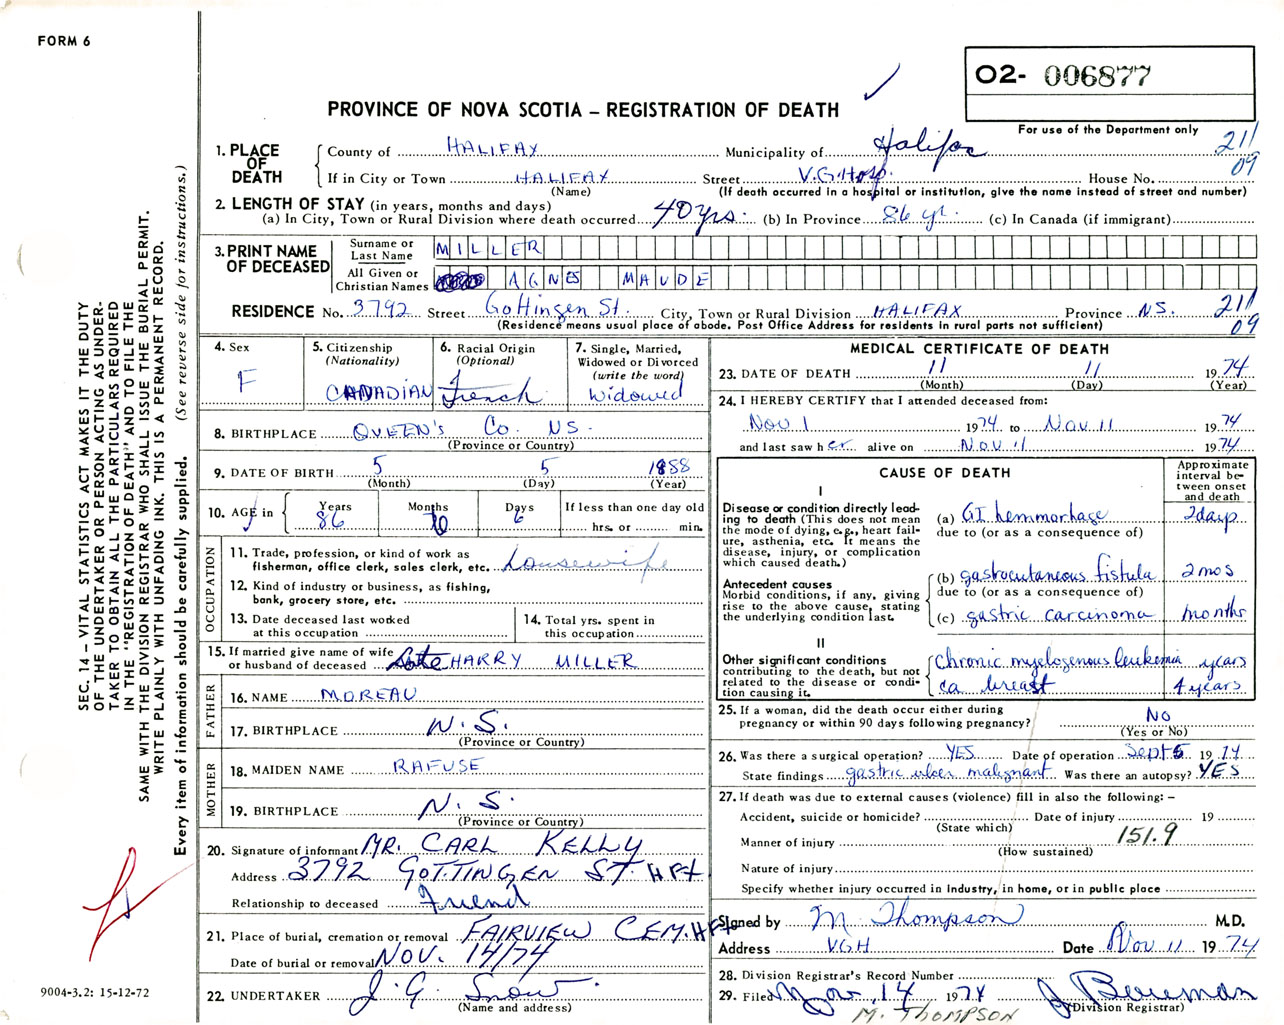 FORM 6
O2- 006877
PROVINCE OF NOVA SCOTIA – REGISTRATION OF DEATH
For use of the Department only
211
09
1. PLACE OF DEATH
County of HALIFAX Municipality of Halifax
If in City or Town HALIFAX Street V.G. Hosp. House No.
(Name) (If death occurred in a hospital or institution, give the name instead of street and number)
2. LENGTH OF STAY (in years, months and days)
(a) In City, Town or Rural Division where death occurred 40 yrs. (b) In Province 86 yr. (c) In Canada (if immigrant)
3. PRINT NAME OF DECEASED
Surname or Last Name MILLER
All Given or Christian Names AGNES MAUDE
RESIDENCE No. 3792 Street Gottingen St. City, Town or Rural Division HALIFAX Province NS. 211
09
(Residence means usual place of abode. Post Office Address for residents in rural parts not sufficient)
SEC. 14 – VITAL STATISTICS ACT MAKES IT THE DUTY
OF THE UNDERTAKER OR PERSON ACTING AS UNDER-
TAKER TO OBTAIN ALL THE PARTICULARS REQUIRED
IN THE "REGISTRATION OF DEATH" AND TO FILE THE
SAME WITH THE DIVISION REGISTRAR WHO SHALL ISSUE THE BURIAL PERMIT.
WRITE PLAINLY WITH UNFADING INK. THIS IS A PERMANENT RECORD.
Every item of information should be carefully supplied. (See reverse side for instructions.)
4. Sex
F
5. Citizenship
(Nationality)
CANADIAN
6. Racial Origin
(Optional)
French
7. Single, Married,
Widowed or Divorced
(write the word)
Widowed
8. BIRTHPLACE QUEEN'S Co. NS.
(Province or Country)
9. DATE OF BIRTH 5 5 1888
(Month) (Day) (Year)
10. AGE in
Years Months Days If less than one day old
86 6 hrs. or min.
OCCUPATION
11. Trade, profession, or kind of work as
fisherman, office clerk, sales clerk, etc. housewife
12. Kind of industry or business, as fishing,
bank, grocery store, etc.
13. Date deceased last worked
at this occupation
14. Total yrs. spent in
this occupation
15. If married give name of wife
or husband of deceased Late HARRY MILLER
FATHER
16. NAME MOREAU
17. BIRTHPLACE N.S.
(Province or Country)
MOTHER
18. MAIDEN NAME RAFUSE
19. BIRTHPLACE N.S.
(Province or Country)
20. Signature of informant MR. CARL KELLY
Address 3792 GOTTINGEN ST. HFX
Relationship to deceased Friend
21. Place of burial, cremation or removal FAIRVIEW CEM. HFX
Date of burial or removal NOV. 14/74
22. UNDERTAKER J. G. Snow
(Name and address)
MEDICAL CERTIFICATE OF DEATH
23. DATE OF DEATH 11 11 1974
(Month) (Day) (Year)
24. I HEREBY CERTIFY that I attended deceased from:
Nov 1 1974 to Nov 11 1974
and last saw her alive on Nov 11 1974
CAUSE OF DEATH
Approximate interval between onset and death
I
Disease or condition directly lead-
ing to death (This does not mean
the mode of dying, e.g., heart fail-
ure, asthenia, etc. It means the
disease, injury, or complication
which caused death.)
(a) GI hemmorhage 2 days
due to (or as a consequence of)
Antecedent causes
Morbid conditions, if any, giving
rise to the above cause, stating
the underlying condition last.
(b) gastrocutaneous fistula 2 mos
due to (or as a consequence of)
(c) gastric carcinoma months
II
Other significant conditions
contributing to the death, but not
related to the disease or condi-
tion causing it.
chronic myelogenous leukemia years
ca breast 4 years
25. If a woman, did the death occur either during
pregnancy or within 90 days following pregnancy? No
(Yes or No)
26. Was there a surgical operation? YES Date of operation Sept 5 1974
State findings gastric ulcer malignant Was there an autopsy? YES
27. If death was due to external causes (violence) fill in also the following: –
Accident, suicide or homicide? Date of injury 19
(State which)
Manner of injury 151.9
(How sustained)
Nature of injury
Specify whether injury occurred in industry, in home, or in public place
Signed by M Thompson M.D.
Address VGH Date Nov 11 1974
28. Division Registrar's Record Number
29. Filed Nov. 14 1974 J Bowman
(Division Registrar)
M. THOMPSON
9004-3.2: 15-12-72